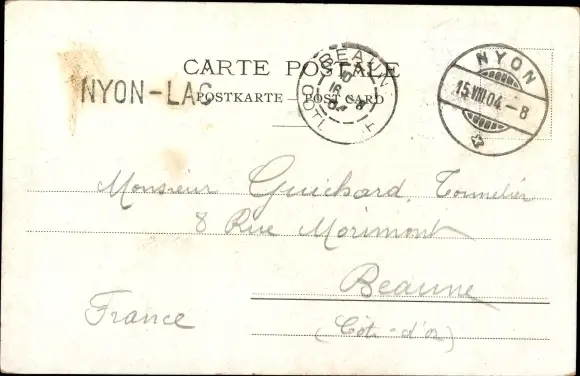 CARTE POSTALE
POSTKARTE – POST CARD
NYON-LAC
BEAUNE
16
8
04
NYON
15.VIII.04.–8
Monsieur Guichard, Tonnelier
8 Rue Morimont
Beaune
France
(Côte-d'or)